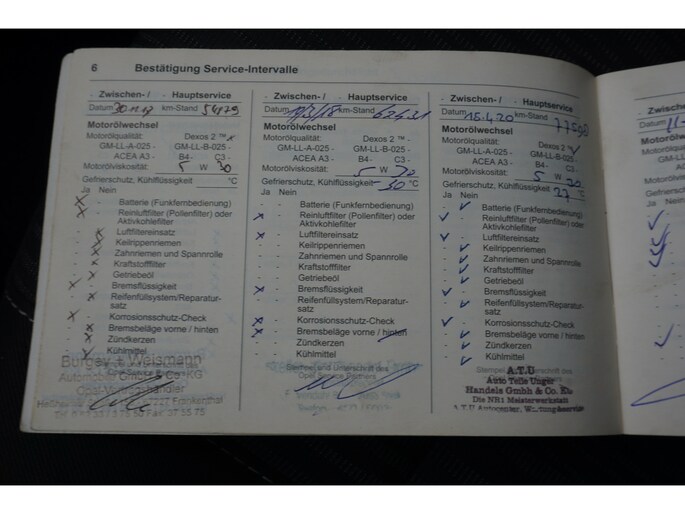 6 Bestätigung Service-Intervalle
- Zwischen- / - Hauptservice
Datum 30.11.17 km-Stand 54179
Motorölwechsel
Motorölqualität: Dexos 2 ™ - x
GM-LL-A-025 - GM-LL-B-025 -
ACEA A3 - B4- C3 -
Motorölviskosität: 5 W 30
Gefrierschutz, Kühlflüssigkeit °C
Ja Nein
Batterie (Funkfernbedienung)
Reinluftfilter (Pollenfilter) oder
Aktivkohlefilter
Luftfiltereinsatz
Keilrippenriemen
Zahnriemen und Spannrolle
Kraftstofffilter
Getriebeöl
Bremsflüssigkeit
Reifenfüllsystem/Reparatur-
satz
Korrosionsschutz-Check
Bremsbeläge vorne / hinten
Zündkerzen
Kühlmittel
Burgey + Weismann
Automobile GmbH & Co. KG
67227 Frankenthal
- Zwischen- / - Hauptservice
Datum km-Stand 62431
Motorölwechsel
Motorölqualität: Dexos 2 ™ -
GM-LL-A-025 - GM-LL-B-025 -
ACEA A3 - B4- C3 -
Motorölviskosität: 5 W 30
Gefrierschutz, Kühlflüssigkeit
- 30 °C
Ja Nein
Batterie (Funkfernbedienung)
Reinluftfilter (Pollenfilter) oder
Aktivkohlefilter
Luftfiltereinsatz
Keilrippenriemen
Zahnriemen und Spannrolle
Kraftstofffilter
Getriebeöl
Bremsflüssigkeit
Reifenfüllsystem/Reparatur-
satz
Korrosionsschutz-Check
Bremsbeläge vorne / hinten
Zündkerzen
Kühlmittel
Stempel und Unterschrift des
Opel Service Partners
- Zwischen- / - Hauptservice
Datum 15.4.20 km-Stand 77590
Motorölwechsel
Motorölqualität: Dexos 2 ™
GM-LL-A-025 - GM-LL-B-025 -
ACEA A3 - B4- C3 -
Motorölviskosität: 5 W 30
Gefrierschutz, Kühlflüssigkeit 27 °C
Ja Nein
Batterie (Funkfernbedienung)
Reinluftfilter (Pollenfilter) oder
Aktivkohlefilter
Luftfiltereinsatz
Keilrippenriemen
Zahnriemen und Spannrolle
Kraftstofffilter
Getriebeöl
Bremsflüssigkeit
Reifenfüllsystem/Reparatur-
satz
Korrosionsschutz-Check
Bremsbeläge vorne / hinten
Zündkerzen
Kühlmittel
A.T.U
Auto Teile Unger
Handels Gmbh & Co. KG
Die NR1 Meisterwerkstatt
A.T.U Autocenter, Wartung&service
- Zwischen-
Datum
Motorölwechsel
Motorölqualität:
GM-LL-A-025
ACEA A3
Motorölviskosität
Gefrierschutz,
Ja Nein